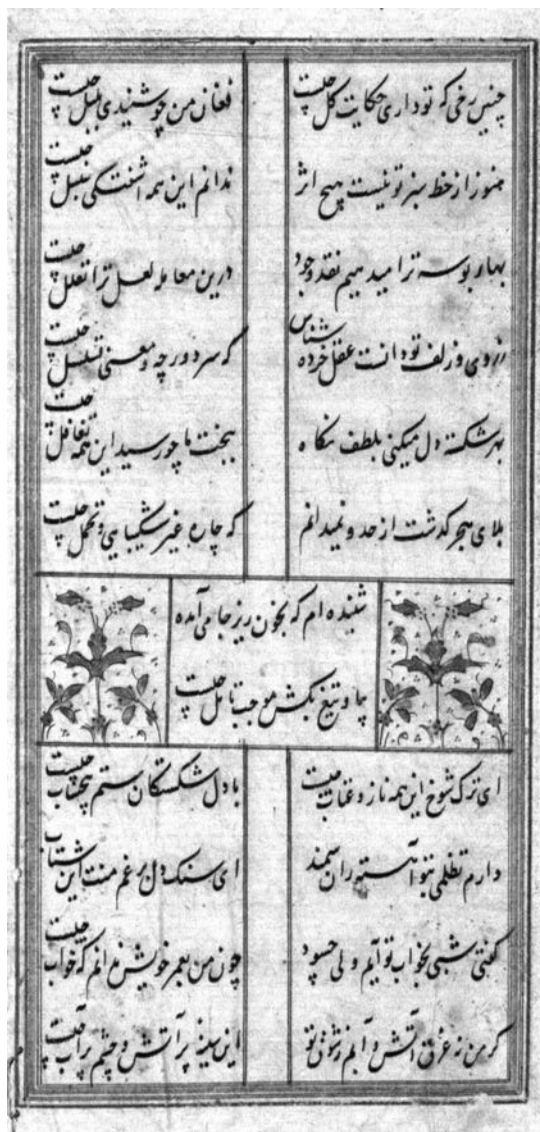 چنین رخی که تو داری حکایت گل چیست
فغان من چو شنیدی بلبل چیست
هنوز از خط سبز تو نیست هیچ اثر
ندانم این همه آشفتگی سنبل چیست
بهار بوسه ترا میدهیم نقد وجود
درین معامله لعل ترا تعلل چیست
ز روی و زلف تو دانست عقل خرده شناس
که سر دور چه و معنی تسلسل چیست
بهر شکسته دل میکنی بلطف نگاه
ببخت ما چو رسید این همه تغافل چیست
بلای هجر گذشت از حد و نمیدانم
که چاره غیر شکیبایی و تحمل چیست
شنیده ام که بخون ریز جامی آمده
بیا و تیغ بکش موجب تامل چیست
ای ترک شوخ این همه ناز و عتاب چیست
با دل شکستگان ستم بیحساب چیست
دارم تظلمی بتو آهسته ران سمند
ای سنگ دل برغم منت این شتاب
گفتی شبی بخواب تو آیم ولی چسود
چون من بعمر خویش ندانم که خواب چیست
گر من نه غرق آتش و آبم ز شوق تو
این سینه پر آتش و چشم پر آب چیست